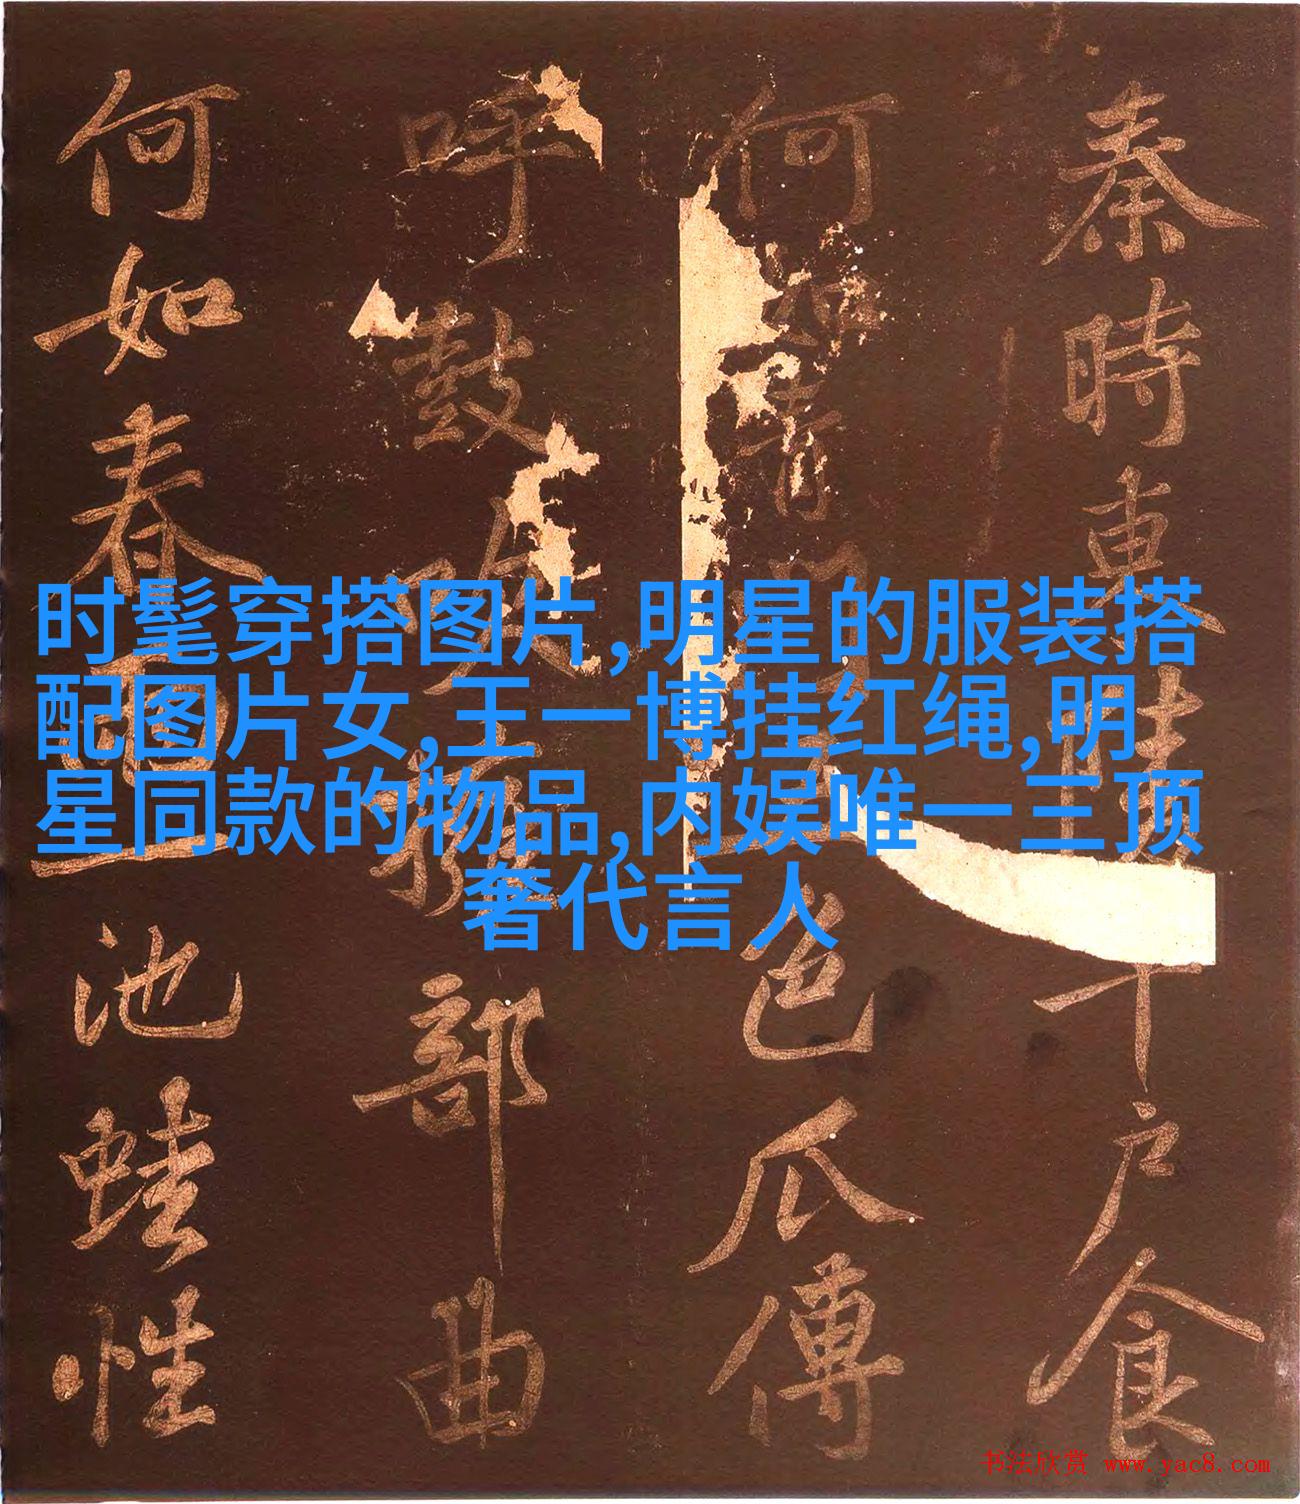 时髦穿搭图片,明星的服装搭
配图片女,王一博挂红绳,明
星同款的物品,内娱唯一三顶
奢代言人
秦時東千户食
何如青門色瓜傅
呼鼓吹部曲
何如春一池蛙性
书法欣赏 www.yac8.com